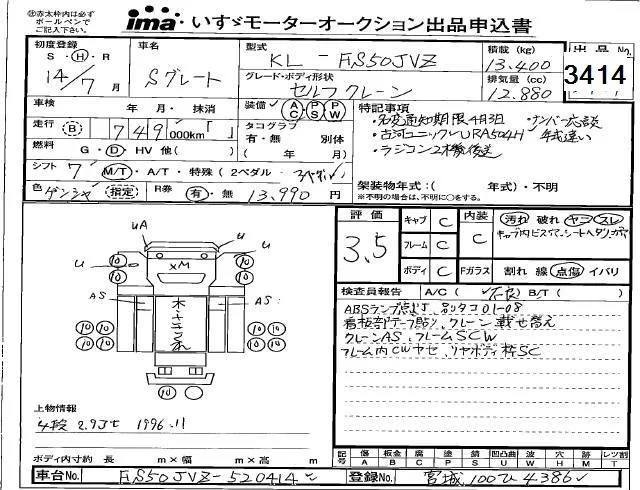 ㊟赤太枠内は必ず
ボールペンで
ご記入下さい。
ima いすゞモーターオークション出品申込書
初度登録
S・Ⓗ・R
14/7月
車名
Sグレート
型式
KL-FS50JVZ
積載(kg)
13,400
出品No.
3414
グレード・ボディ形状
セルフクレーン
排気量(cc)
12,880
車検 年 月・抹消
装備 AC PS PW
特記事項
・名変通知期限4月3日 ・ナンバー応談
・古河ユニック URA504H 年式違い
・ラジコン2機後送
走行 B 749,000km「 」
タコグラフ
有・無 別体
( 年 月)
燃料 G・Ⓓ・HV 他( )
シフト 7 M/T・A/T・特殊(2ペダル・
色 ゲンシャ 指定 R券 有・無 13,990円
架装物年式:( 年式)・不明
※不明の場合は、不明に○をする。
評価
3.5
キャブ C
フレーム C
ボディ C
内装 C
Fガラス
汚れ 破れ ヤニ スレ
割れ 線 点傷 イバリ
検査員報告 A/C( 不良)B/T( )
ABSランプ点灯、別タコ01-08
看板剤テープ貼り、クレーン載せ替え
クレーンAS、フレームSCW
フレーム内CWヤセ、リヤボディ枠SC
uA
u
u
u
XM
AS
AS
10
上物情報
4段 2.9Jt 1996.11
ボディ内寸約 長 m×幅 m×高 m
記号 傷A 板金B 腐C 塗P 錆S 凹凸曲U 波W 穴H 跡M レツ割T
車台No. FS50JVZ-520414
登録No. 宮城 100ひ4386